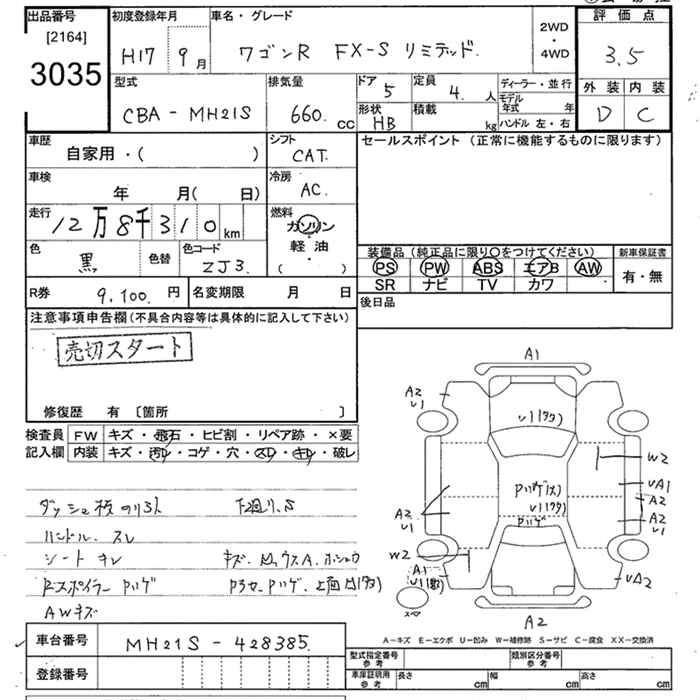 出品番号
[2164]
3035
初度登録年月
H17 9月
車名・グレード
ワゴンR FX-S リミテッド.
2WD
・
4WD
評価点
3.5
外装 内装
D C
型式
CBA - MH21S
排気量
660. cc
ドア
5
定員
4. 人
形状
HB
積載
kg
ディーラー・並行
モデル
年式 年
ハンドル 左・右
車歴
自家用・( )
シフト
CAT.
セールスポイント (正常に機能するものに限ります)
車検
年 月( 日)
冷房
AC.
走行
12万8千310km
燃料
ガソリン
・
軽油
・
( )
色
黒
色替
色コード
ZJ3.
装備品 (純正品に限り○をつけてください)
PS PW ABS エアB AW
SR ナビ TV カワ
新車保証書
有・無
R券 9,100. 円
名変期限 月 日
後日品
注意事項申告欄(不具合内容等は具体的に記入して下さい)
売切スタート
修復歴 有 〔箇所 〕
検査員
記入欄
FW キズ・飛石・ヒビ割・リペア跡・×要
内装 キズ・汚レ・コゲ・穴・スレ・キレ・破レ
ハンドル スレ
シート キレ
Rスポイラー Pハゲ
AWキズ
A1
A2
U1
W2
UA1
A2
A2
U1
A2
U1
W2
A1
UA2
A2
スペア
A－キズ E－エクボ U－凹み W－補修跡 S－サビ C－腐食 XX－交換済
車台番号 MH21S - 428385.
登録番号
型式指定番号
参考
類別区分番号
参考
車庫証明用
参考
長さ cm 幅 cm 高さ cm